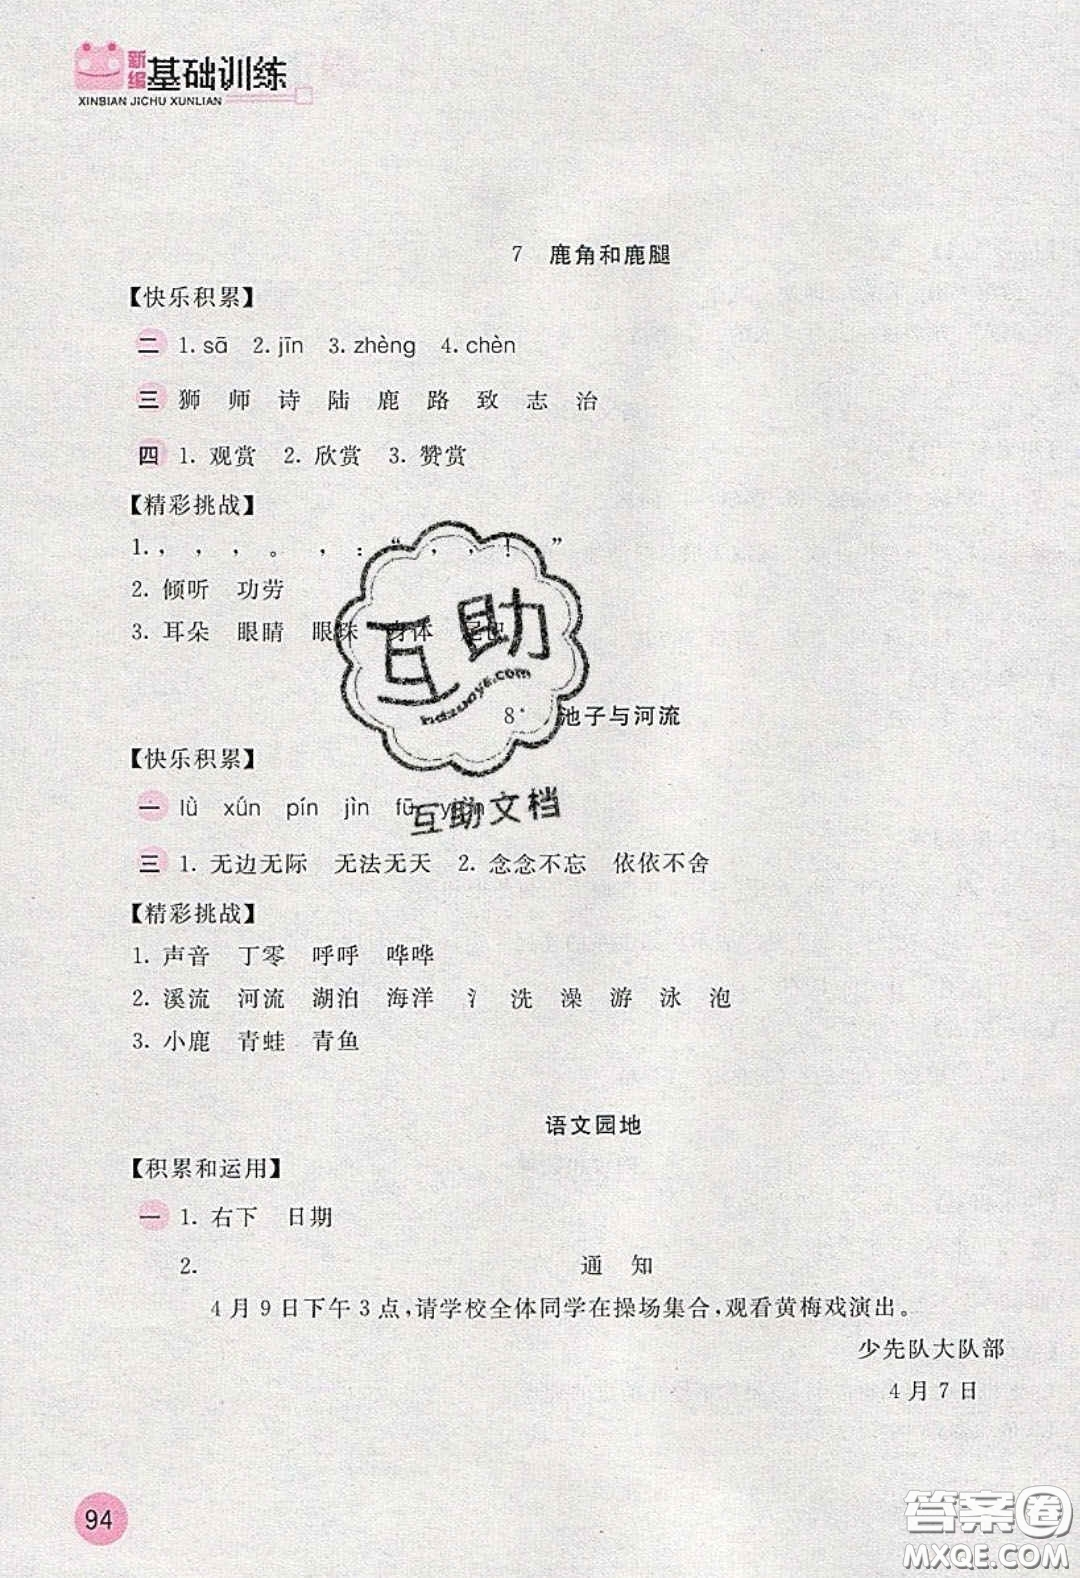 新编基础训练
XINBIAN JICHU XUNLIAN
7 鹿角和鹿腿
【快乐积累】
二 1. sā 2. jīn 3. zhèng 4. chèn
三 狮 师 诗 陆 鹿 路 致 志 治
四 1. 观赏 2. 欣赏 3. 赞赏
【精彩挑战】
1. ， ， ， 。 ， ：“ ， ， ！ ”
2. 倾听 功劳
3. 耳朵 眼睛 眼珠 身体 尾巴
8* 池子与河流
【快乐积累】
一 lǜ xún pín jìn fū
三 1. 无边无际 无法无天 2. 念念不忘 依依不舍
【精彩挑战】
1. 声音 丁零 呼呼 哗哗
2. 溪流 河流 湖泊 海洋 氵 洗 澡 游 泳 泡
3. 小鹿 青蛙 青鱼
语文园地
【积累和运用】
一 1. 右下 日期
2. 通 知
4月9日下午3点，请学校全体同学在操场集合，观看黄梅戏演出。
少先队大队部
4月7日
94
互助
hdzuoye.com
互助文档
答案圈
MXQE.COM